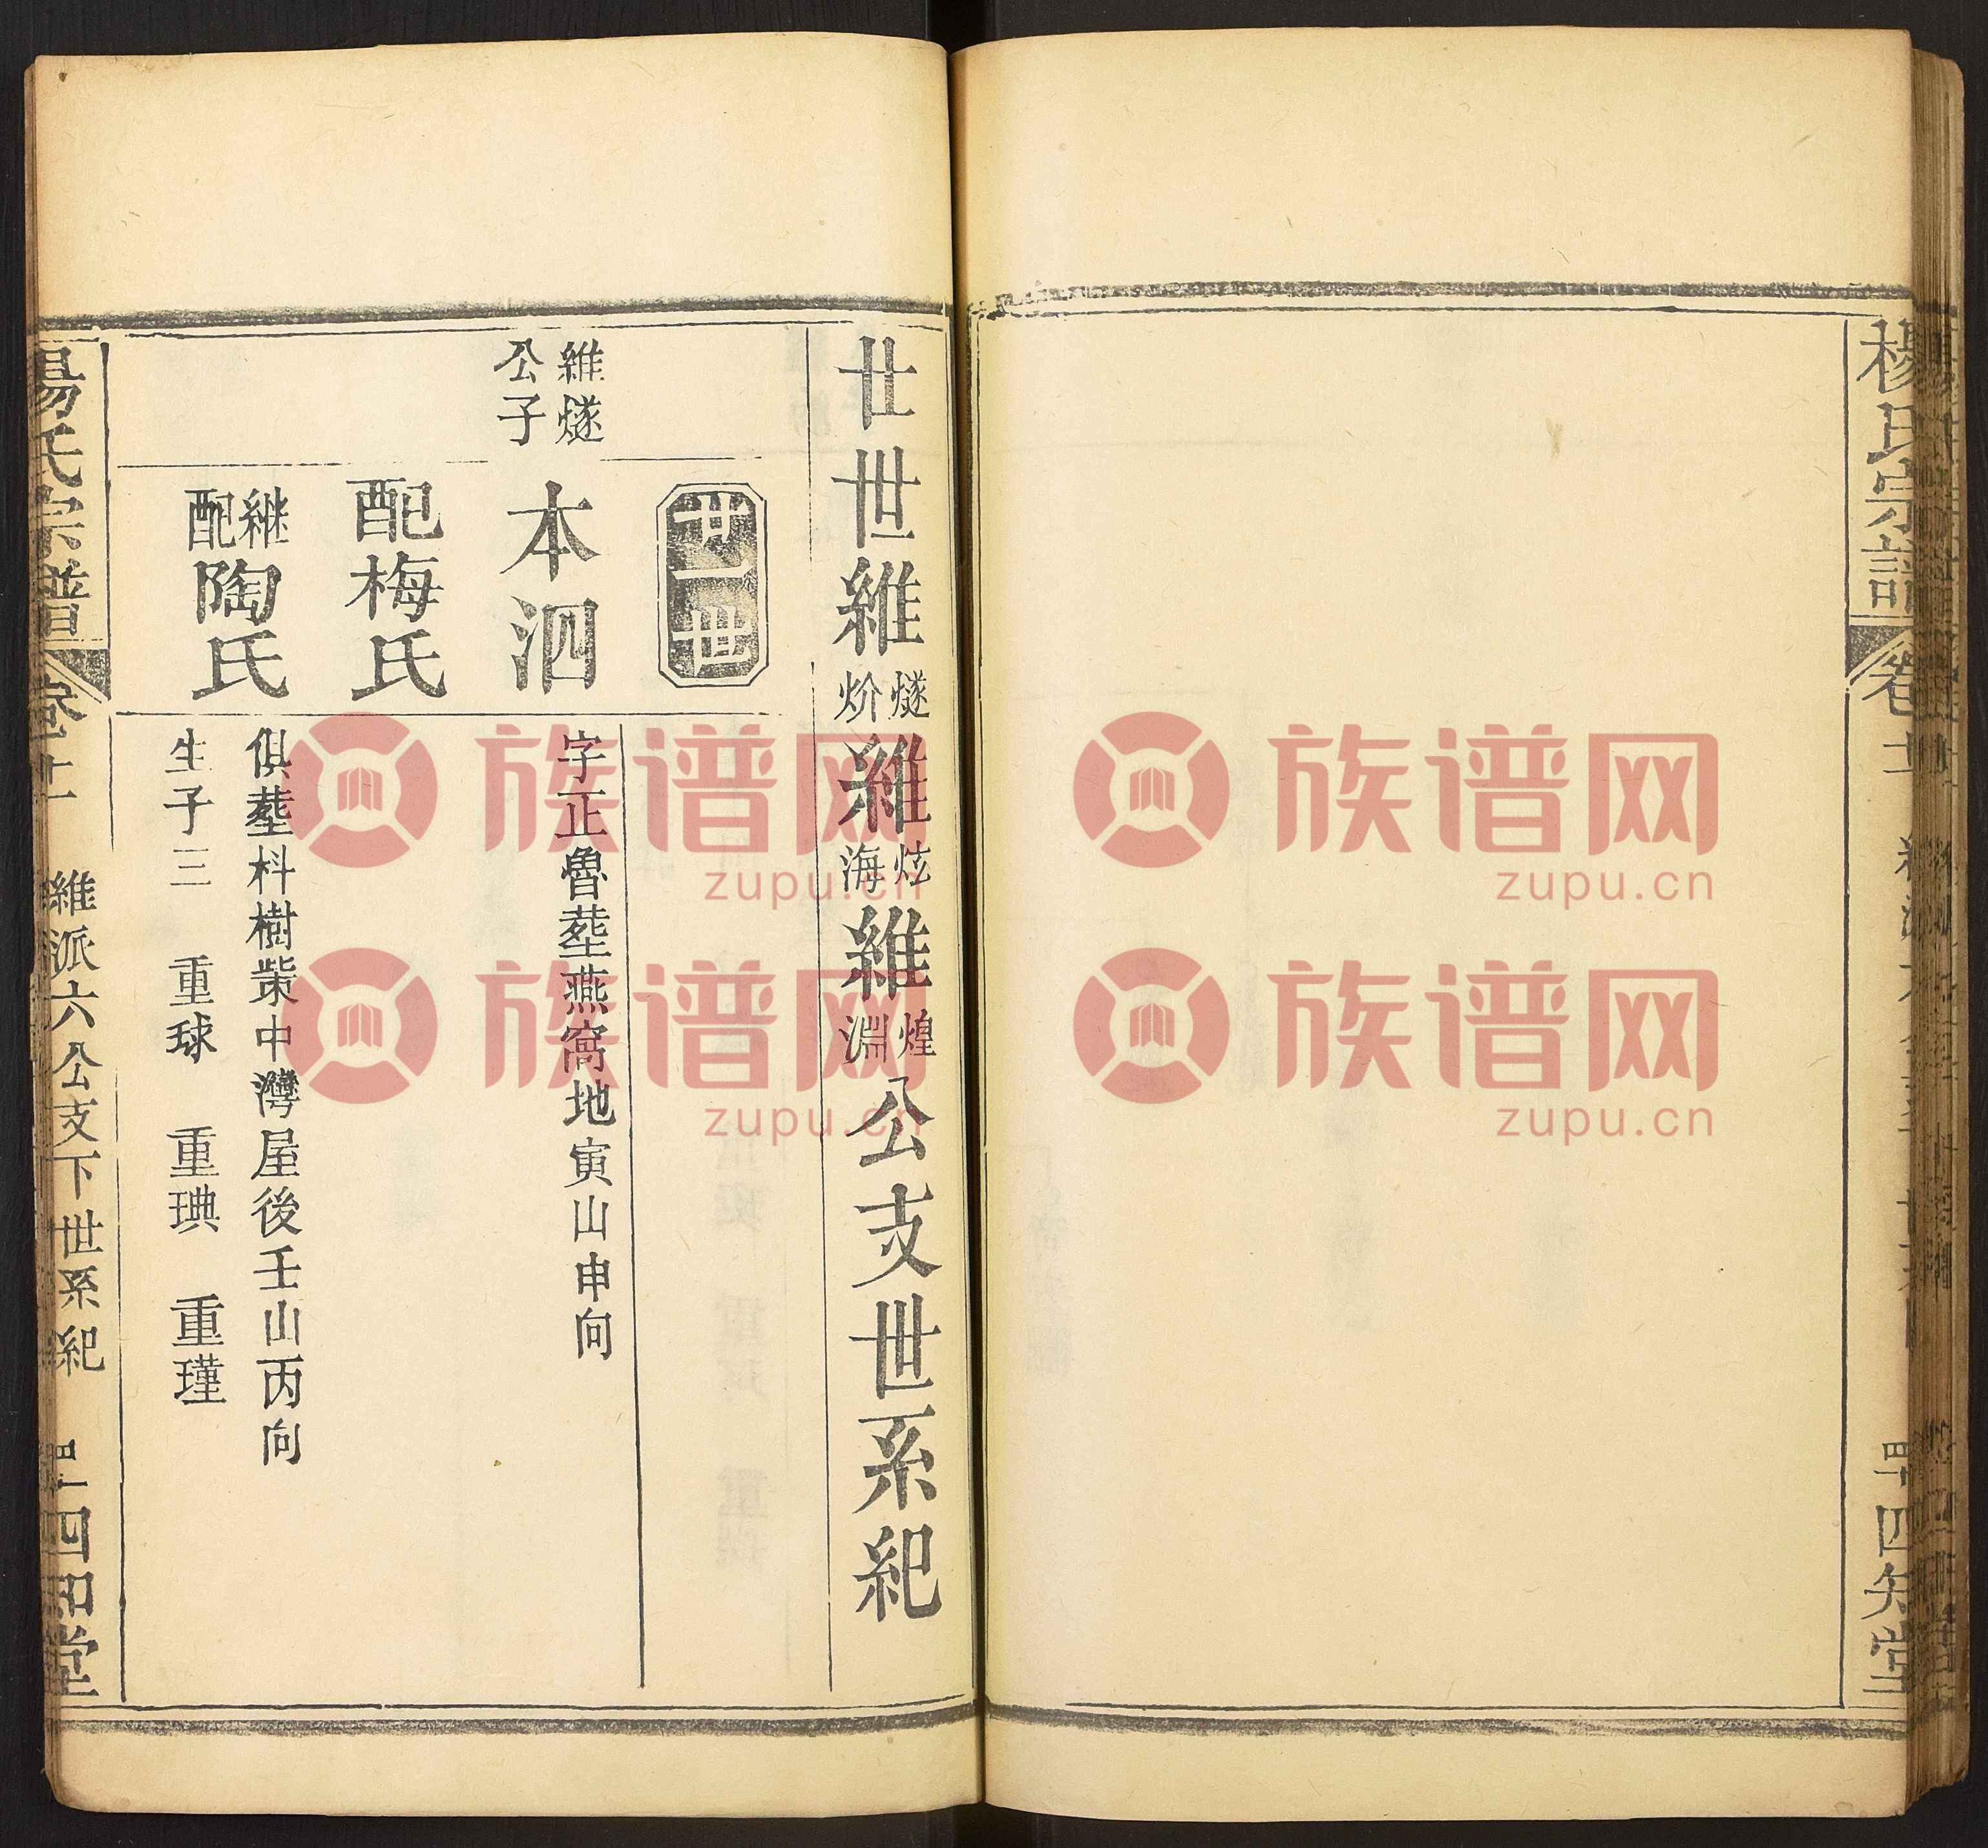 楊氏宗譜
卷十
四十
四知堂
廿世維燧炌維炫海維煌淵公支世系紀
廿一世
維燧
公子
本泗
字正魯塟燕窩地寅山申向
配梅氏
継配陶氏
俱塟枓樹柴中灣屋後壬山丙向
生子三 重球 重琠 重瑾
楊氏宗譜
卷十
維派六公支下世系紀
四一
四知堂
族谱网
zupu.cn
族谱网
zupu.cn
族谱网
zupu.cn
族谱网
zupu.cn